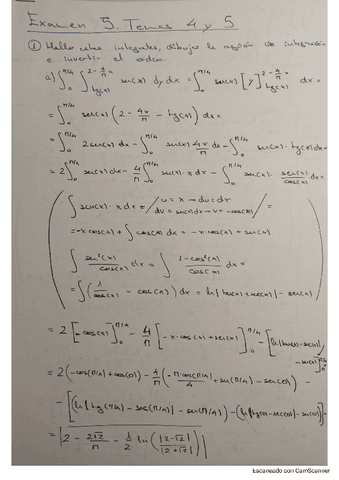 Examen 5. Temas 4 y 5
① Halla estas integrales, dibujar la región de integración
e invertir el orden.
a) ∫₀^{π/4} ∫_{tg(x)}^{2-4x/π} sen(x) dy dx = ∫₀^{π/4} sen(x) [y]_{tg(x)}^{2-4x/π} dx =
= ∫₀^{π/4} sen(x) (2 - 4x/π - tg(x)) dx =
= ∫₀^{π/4} 2sen(x) dx - ∫₀^{π/4} sen(x) 4x/π dx - ∫₀^{π/4} sen(x) · tg(x) dx =
= 2 ∫₀^{π/4} sen(x) dx - 4/π ∫₀^{π/4} sen(x) · x dx - ∫₀^{π/4} sen(x) · sen(x)/cos(x) dx =
( ∫ sen(x) · x dx = / u = x → du = dx
dv = sen(x) dx → v = -cos(x) / =
= -x cos(x) + ∫ cos(x) dx = -x · cos(x) + sen(x)
∫ sen²(x)/cos(x) dx = ∫ 1-cos²(x)/cos(x) dx =
= ∫ (1/cos(x) - cos(x)) dx = ln | tan(x) + sec(x) | - sen(x) )
= 2 [-cos(x)]₀^{π/4} - 4/π [-x · cos(x) + sen(x)]₀^{π/4} - [ln |tan(x) - sec(x)|
- sen(x)]₀^{π/4} =
= 2 (-cos(π/4) + cos(0)) - 4/π (-π cos(π/4)/4 + sen(π/4) - sen(0)) -
- [(ln | tg(π/4) - sec(π/4) | - sen(π/4)) - (ln | tg(0) - sec(0) | - sen(0))] =
= | 2 - 2√2/π - 1/2 ln ( |2-√2| / |2+√2| ) |
Escaneado con CamScanner